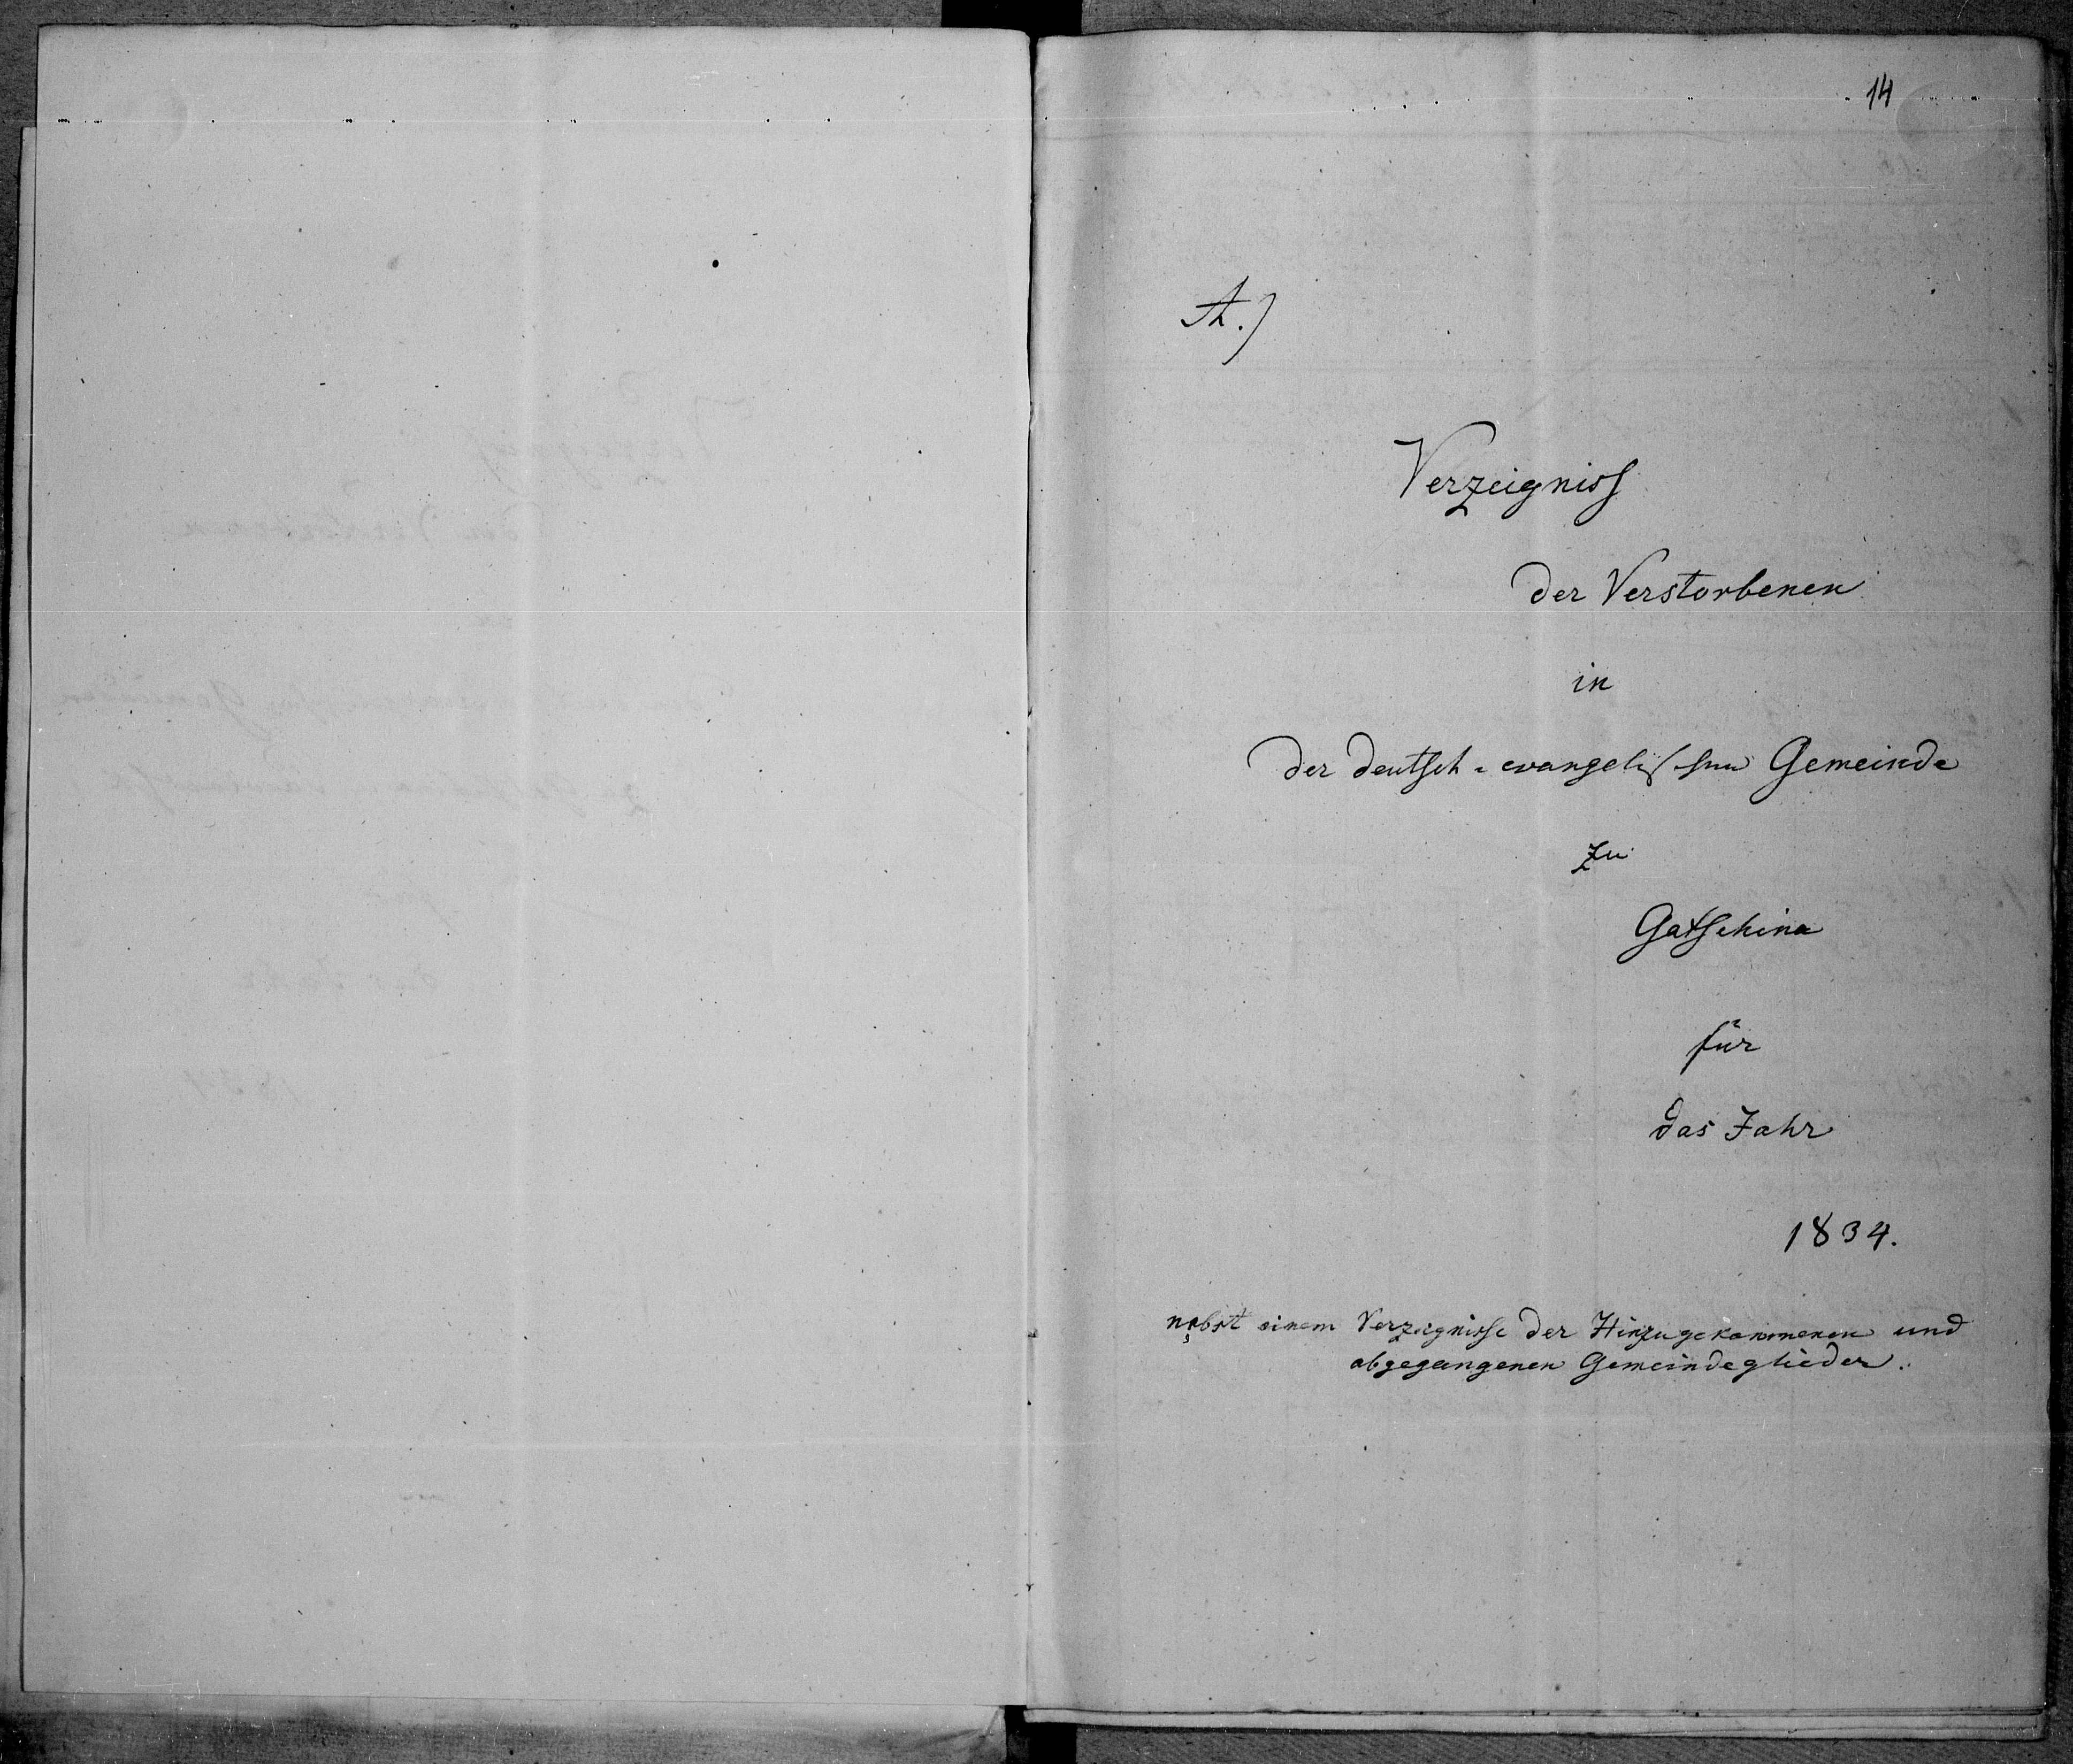 14
A.)
Verzeigniss
der Verstorbenen
in
der deutsch-evangelischen Gemeinde
zu
Gatschina
für
das Jahr
1834.
nebst einem Verzeignisse der Hinzugekommenen und
abgegangenen Gemeindeglieder.